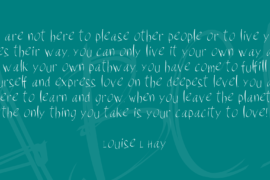 are not here to please other people or to live y
es their way you can only live it your own way a
walk your own pathway you have come to fulfill
urself and express love on the deepest level you c
ere to learn and grow when you leave the planet
the only thing you take is your capacity to love!
LOUISE L HAY